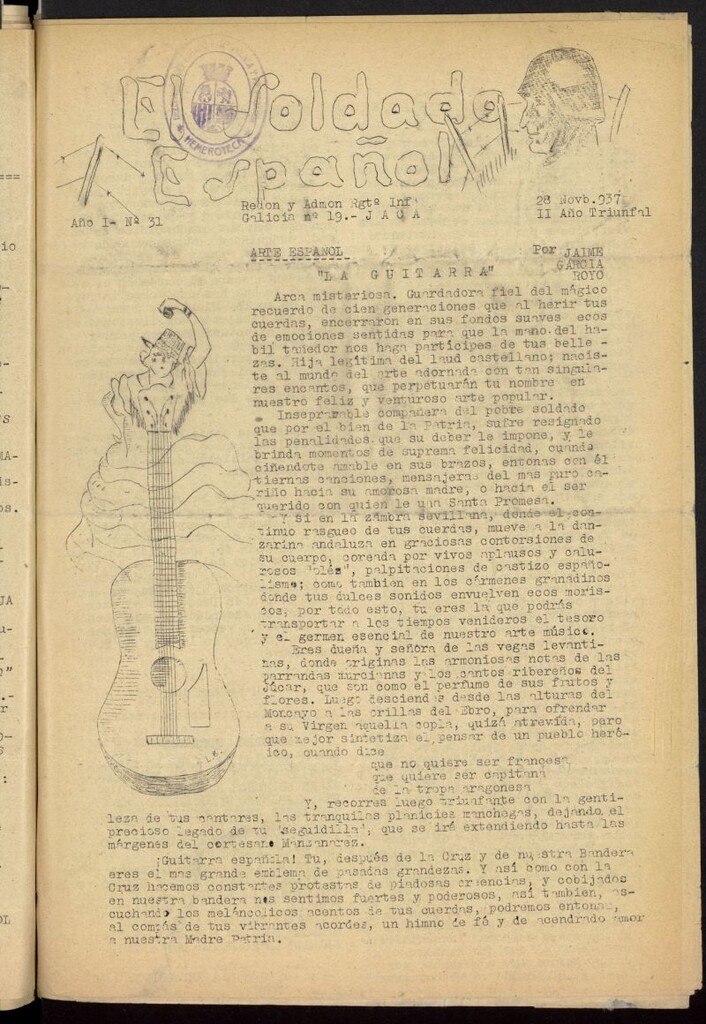 El Soldado
Español
HEMEROTECA
Redon y Admon Rgtº Inf
Galicia nº 19.- J A C A
Año I- Nº 31
28 Novb.937
II Año Triunfal
ARTE ESPAÑOL
Por JAIME
GARCIA
ROYO
"LA GUITARRA"
Arca misteriosa. Guardadora fiel del mágico
recuerdo de cien generaciones que al herir tus
cuerdas, encerraron en sus fondos suaves ecos
de emociones sentidas para que la mano del ha-
bil tañedor nos haga participes de tus belle-
zas. Hija legítima del laud castellano; nacis-
te al mundo del arte adornada con tan singula-
res encantos, que perpetuarán tu nombre en
nuestro feliz y venturoso arte popular.
Inseprarable compañera del pobre soldado
que por el bien de la Patria, sufre resignado
las penalidades que su deber le impone, y le
brinda momentos de suprema felicidad, cuando
ciñendote amable en sus brazos, entonas con él
tiernas canciones, mensajeras del mas puro ca-
riño hacia su amorosa madre, o hacia el ser
querido con quien le una Santa Promesa.
Y si en la zámbra sevillana, donde el con-
tinuo rasgueo de tus cuerdas, mueve a la dan-
zarina andaluza en graciosas contorsiones de
su cuerpo, coreada por vivos aplausos y calu-
rosos "olés", palpitaciones de castizo españo-
lismo; como tambien en los cármenes granadinos
donde tus dulces sonidos envuelven ecos moris-
cos, por todo esto, tu eres la que podrás
transportar a los tiempos venideros el tesoro
y el germen esencial de nuestro arte músico.
Eres dueña y señora de las vegas levanti-
nas, donde originas las armoniosas notas de las
parrandas murcianas y los cantos ribereños del
Júcar, que son como el perfume de sus frutos y
flores. Luego desciendes desde las alturas del
Moncayo a las orillas del Ebro, para ofrendar
a su Virgen aquella copla, quizá atrevida, pero
que mejor sintetiza el pensar de un pueblo heró-
ico, cuando dice
que no quiere ser francesa
que quiere ser capitana
de la tropa aragonesa
Y, recorres luego triunfante con la genti-
leza de tus cantares, las tranquilas planicies manchegas, dejando el
precioso legado de tu "seguidilla", que se irá extendiendo hasta las
márgenes del cortesano Manzanarez.
¡Guitarra española! Tu, después de la Cruz y de nuestra Bandera
eres el mas grande emblema de pasadas grandezas. Y así como con la
Cruz hacemos constantes protestas de piadosas creencias, y cobijados
en nuestra bandera nos sentimos fuertes y poderosos, así tambien, es-
cuchando los meláncolicos acentos de tus cuerdas, podremos entonar,
al compás de tus vibrantes acordes, un himno de fé y de acendrado amor
a nuestra Madre Patria.